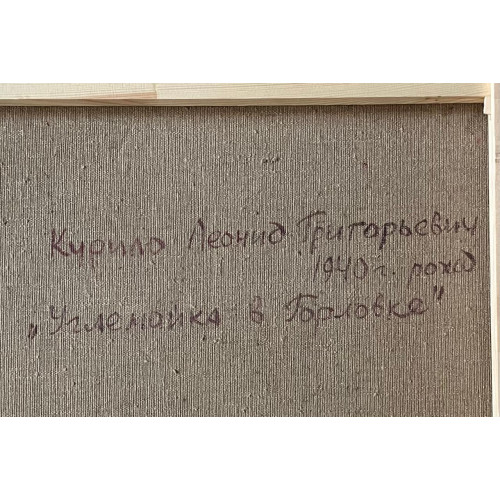 Курило Леонид Григорьевич
1940 г. рожд
„Углемойка в Горловке"